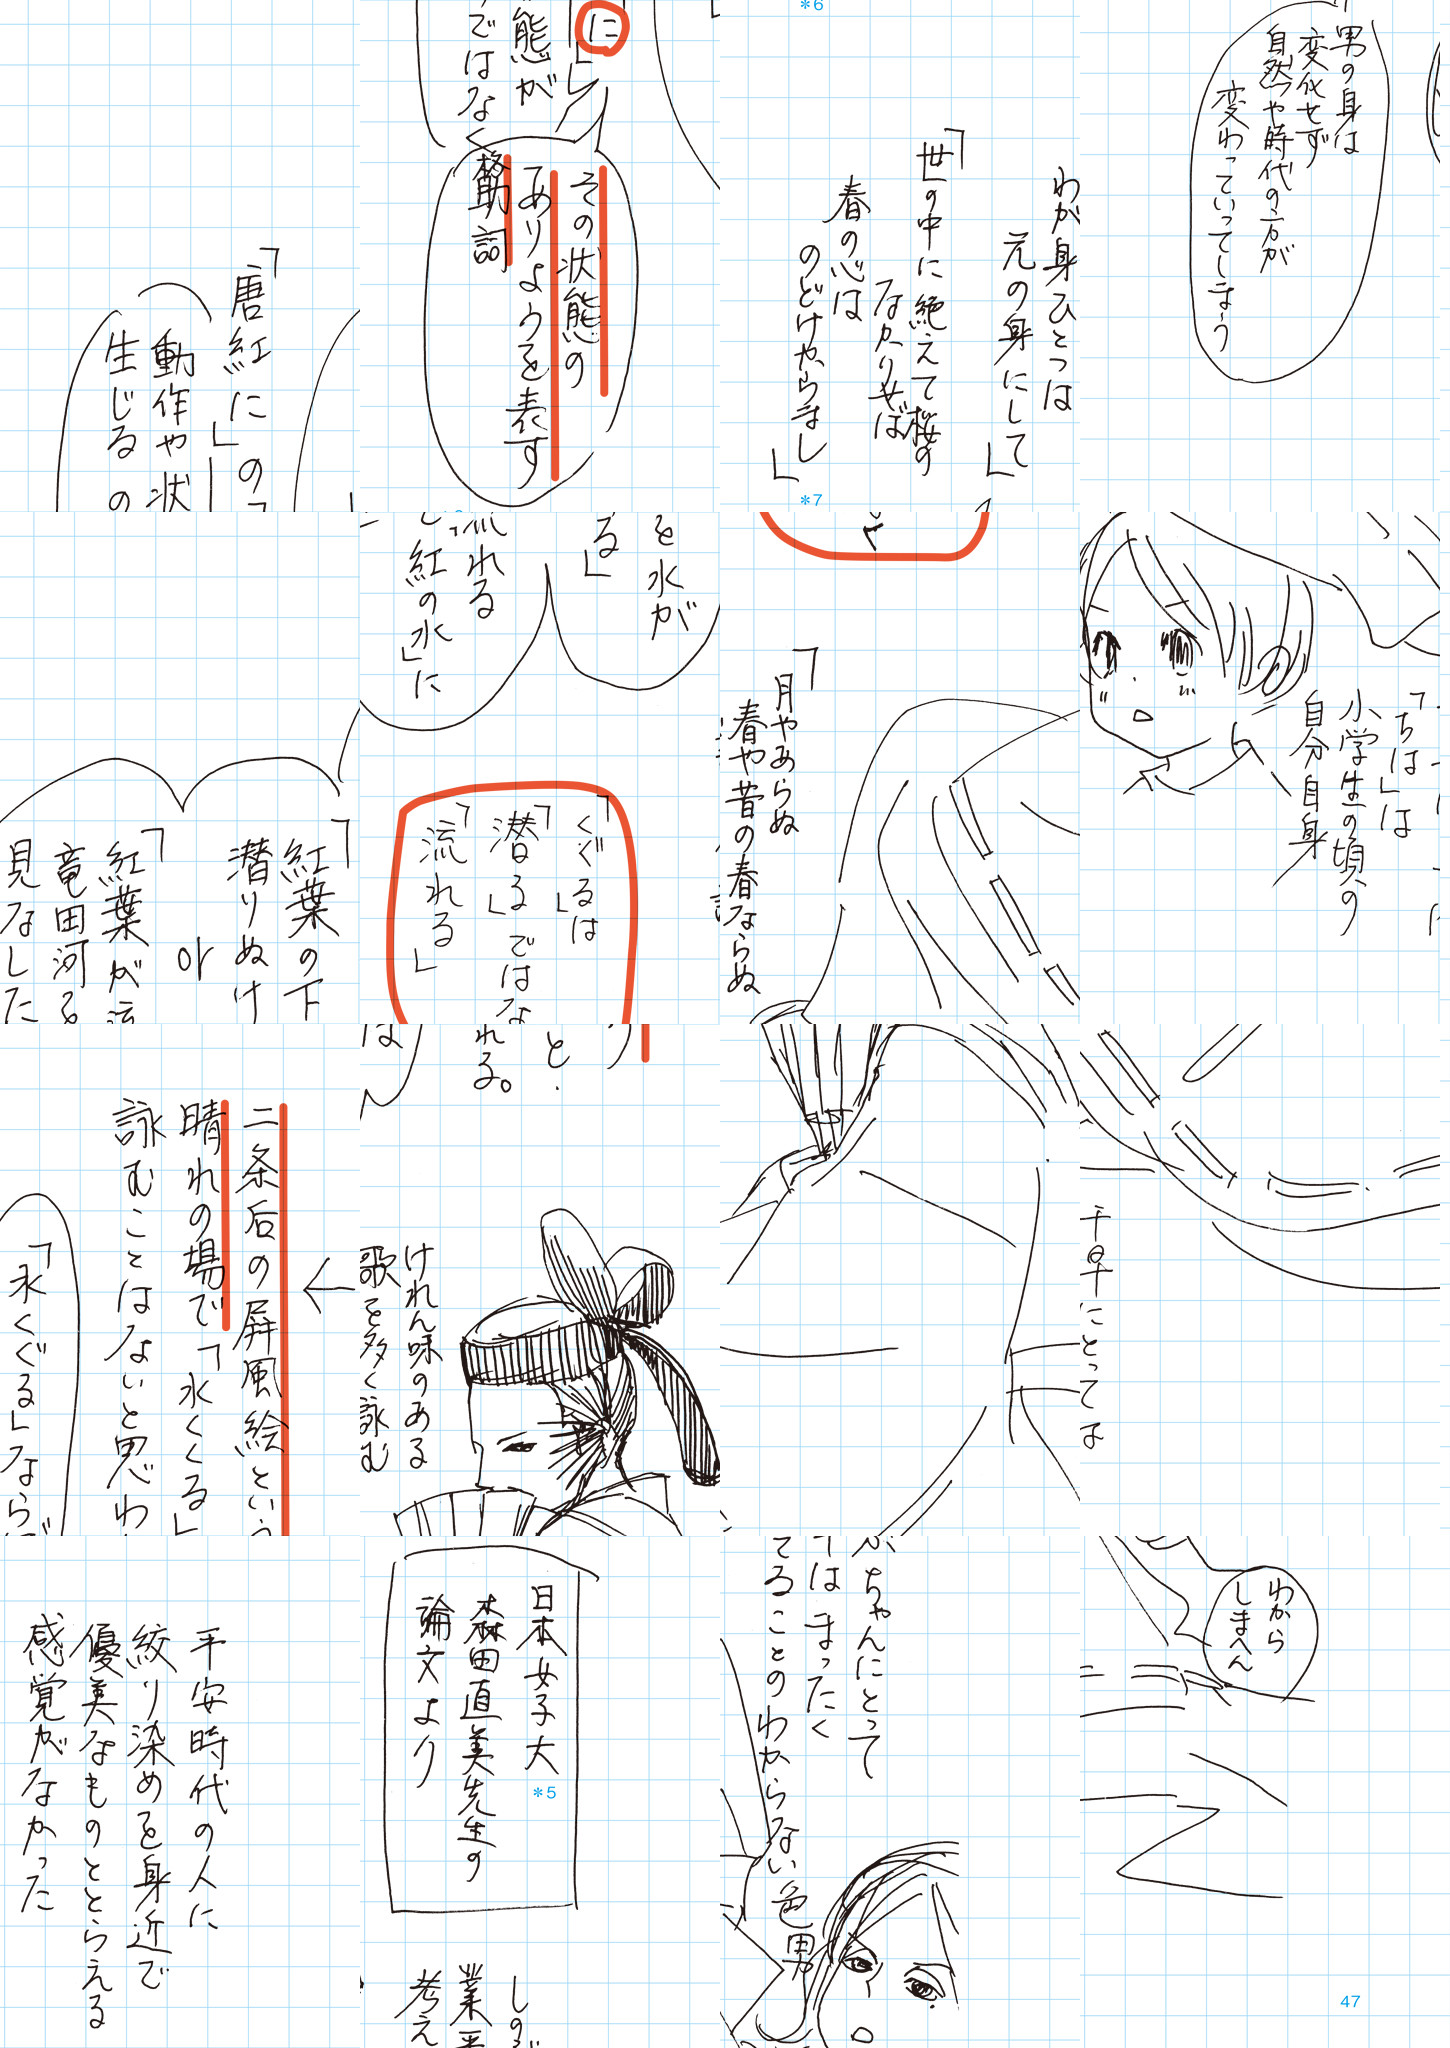 「唐紅に」の「
動作や状
生じるの
に」
態が
ではなく
その状態の
ありようを表す
格助詞
*6
わが身ひとつは
元の身にして」
「世の中に絶えて桜の
なかりせば
春の心は
のどけからまし」
*7
男の身は
変化せず
自然や時代の方が
変わっていってしまう
「紅葉の下
潜りぬけ
or
「紅葉が
竜田河を
見なした
を水が
る」
流れる
紅の水」に
「くぐる」は
「潜る」ではな
「流れる」
「月やあらぬ
春や昔の春ならぬ
「ちは」は
小学生の頃の
自分自身
二条后の屏風絵という
晴れの場で「水くくる」
詠むことはないと思わ
「水くぐる」ならば
と.
れる。
は
けれん味のある
歌を多く詠む
千早にとっては
平安時代の人に
絞り染めを身近で
優美なものととらえる
感覚がなかった
日本女子大
森田直美先生の
論文より
*5
業平
考え
ちゃんにとって
はまったく
てることのわからない色男
わから
しまへん
47